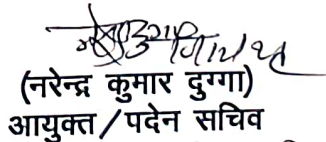 (नरेन्द्र कुमार दुग्गा)
आयुक्त / पदेन सचिव